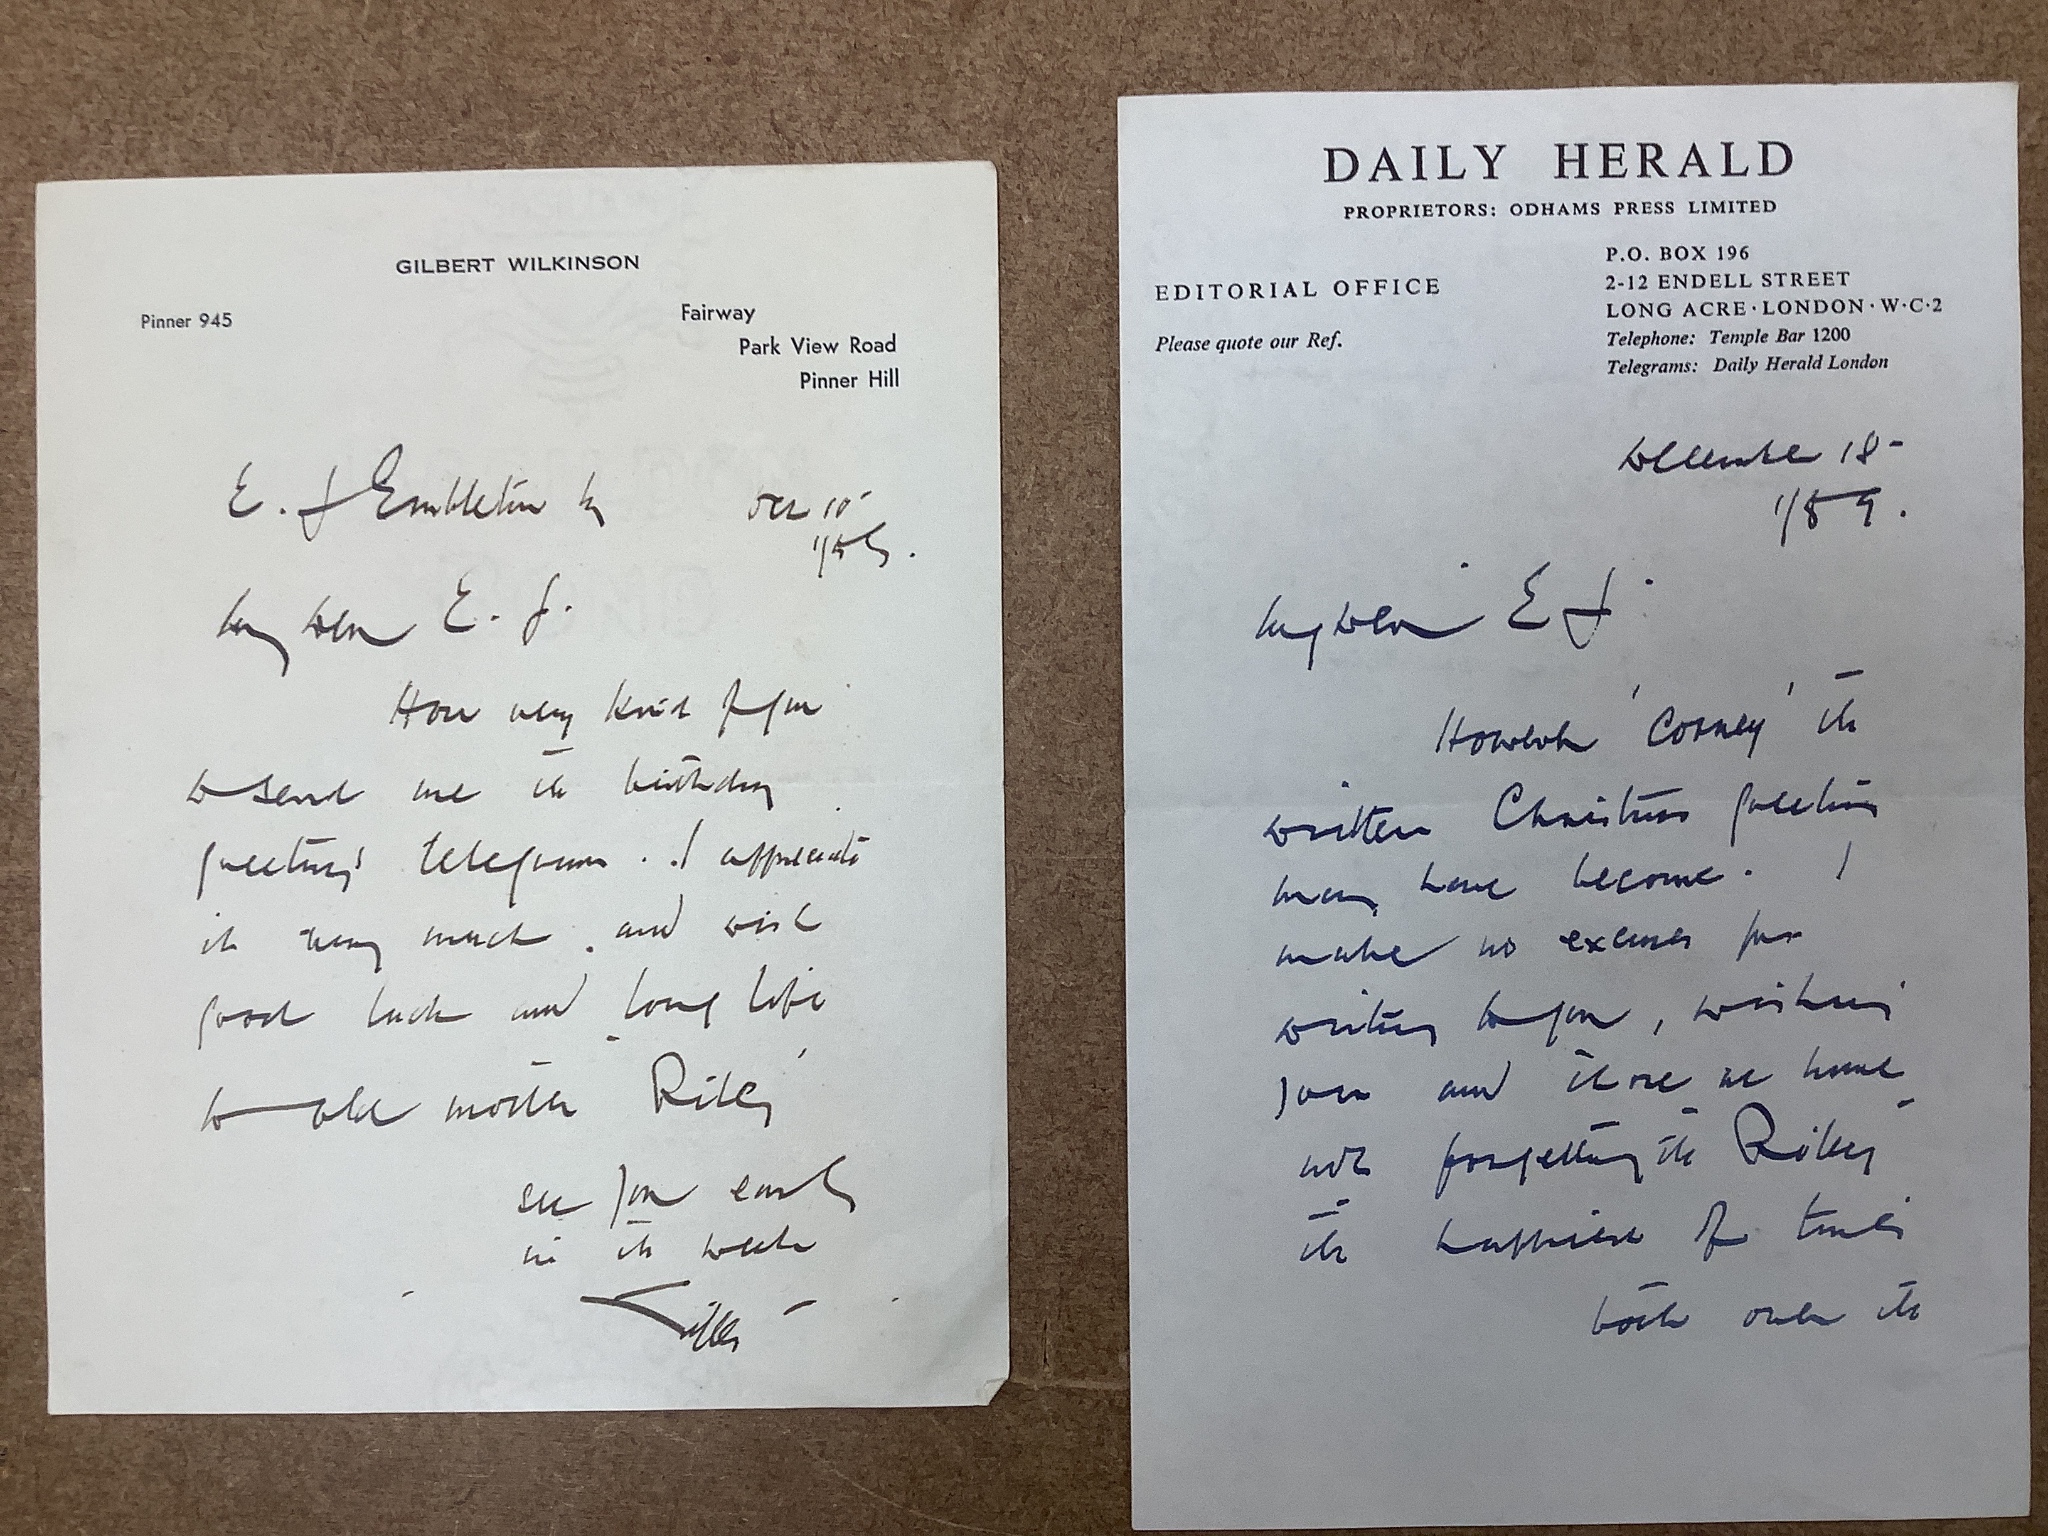 GILBERT WILKINSON
Pinner 945
Fairway
Park View Road
Pinner Hill
E. J Embleton Esq
Oct 10
My dear E. J.
How very kind of you
to send me the birthday
greetings telegram. I appreciate
it very much. and wish
good luck and long life
to old mother "Riley"
see you early
in the week
DAILY HERALD
PROPRIETORS: ODHAMS PRESS LIMITED
EDITORIAL OFFICE
Please quote our Ref.
P.O. BOX 196
2-12 ENDELL STREET
LONG ACRE·LONDON·W·C·2
Telephone: Temple Bar 1200
Telegrams: Daily Herald London
December 18
1/59.
My dear E J
However 'Corney' the
written Christmas greeting
may have become. I
make no excuses for
writing to you, wishing
you and those at home
not forgetting the "Riley"
the happiest of times
both over the